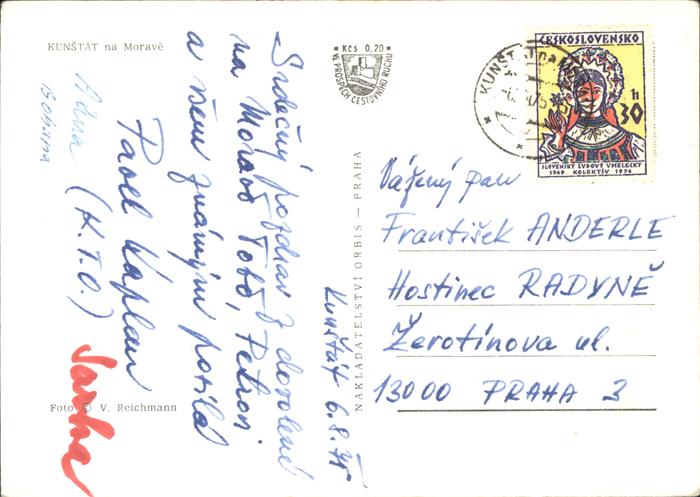 KUNŠTÁT na Moravě
Kčs 0,20
VE PROSPĚCH CESTOVNÍHO RUCHU
KUNŠTÁT na
ČESKOSLOVENSKO
30 h
SLOVENSKÝ ĽUDOVÝ UMELECKÝ
1949 KOLEKTÍV 1974
Srdečný pozdrav z dovolené
na Moravě Tobě, Petrovi
a všem známým posílá
Pavel Kaplan
(K.T.O.)
Alena
Jarka
Kunštát 6.8.75
NAKLADATELSTVÍ ORBIS — PRAHA
Vážený pan
František ANDERLE
Hostinec RADYNĚ
Žerotínova ul.
13000 PRAHA 3
Foto © V. Reichmann